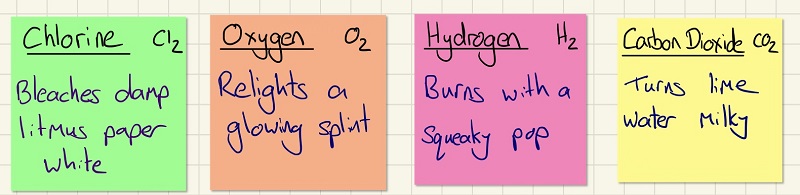 Chlorine Cl2
Bleaches damp
litmus paper
white
Oxygen O2
Relights a
glowing splint
Hydrogen H2
Burns with a
squeaky pop
Carbon Dioxide CO2
Turns lime
water milky